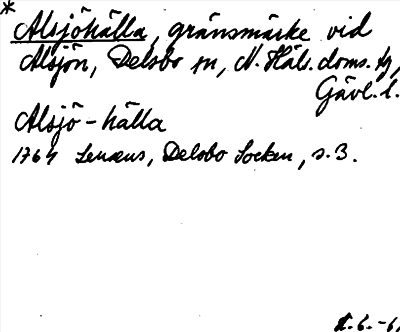 *
Alsjöhälla, gränsmärke vid
Alsjön, Delsbo sn, N. Häls. doms. tg,
Gävl. l.
Alsjö-hälla
1764 Lenæus, Delsbo Socken, s. 3.